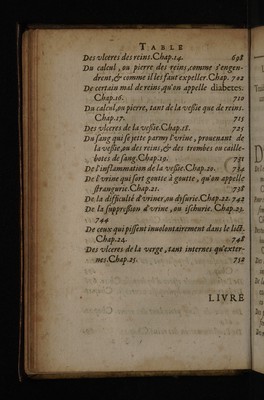 TABLE
Des vlceres des reins. Chap.14. 698
Du calcul, ou pierre des reins, comme s'engen-
drent, & comme il les faut expeller. Chap. 702
De certain mal de reins, qu'on appelle diabetes.
Chap.16. 710
Du calcul, ou pierre, tant de la vessie que de reins.
Chap.17. 715
Des vlceres de la vessie. Chap.18. 725
Du sang qui se jette parmy l'vrine, prouenant de
la vessie, ou des reins, & des trombes ou caille-
botes de sang. Chap.19. 731
De l'inflammation de la vessie. Chap.20. 734
De l'vrine qui sort goutte à goutte, qu'on appelle
strangurie. Chap.21. 738
De la difficulté d'vriner, ou disurie. Chap.22. 742
De la suppression d'vrine, ou ischurie. Chap.23.
744
De ceux qui pissent inuolontairement dans le lict.
Chap.24. 748
Des vlceres de la verge, tant internes qu'exter-
nes. Chap.25. 752
LIVRE